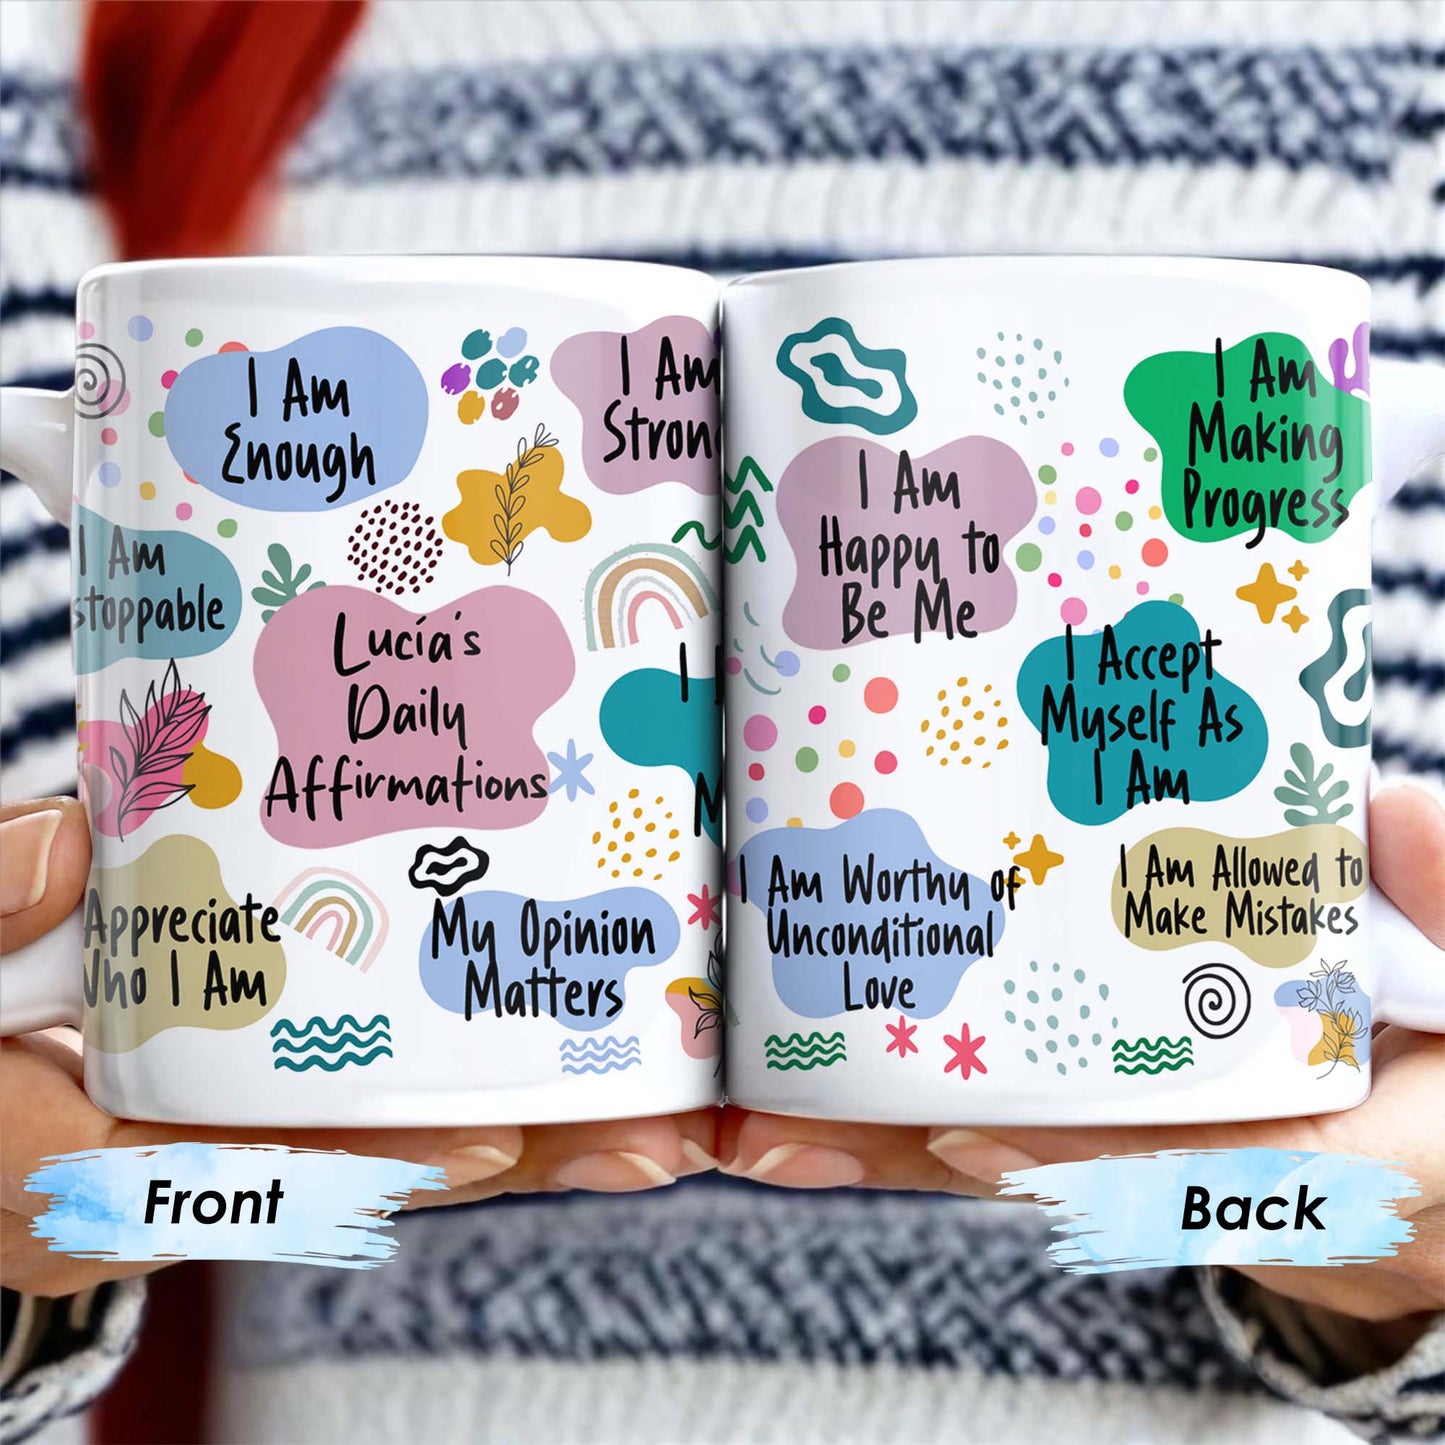 I Am
Enough
I Am
I Am
Lucía's
Daily
Affirmations
Appreciate
Who I Am
My Opinion
Matters
I Am
Happy to
Be Me
I Am
Making
Progress
I Accept
Myself As
I Am
I Am Worthy of
Unconditional
Love
I Am Allowed to
Make Mistakes
Front
Back